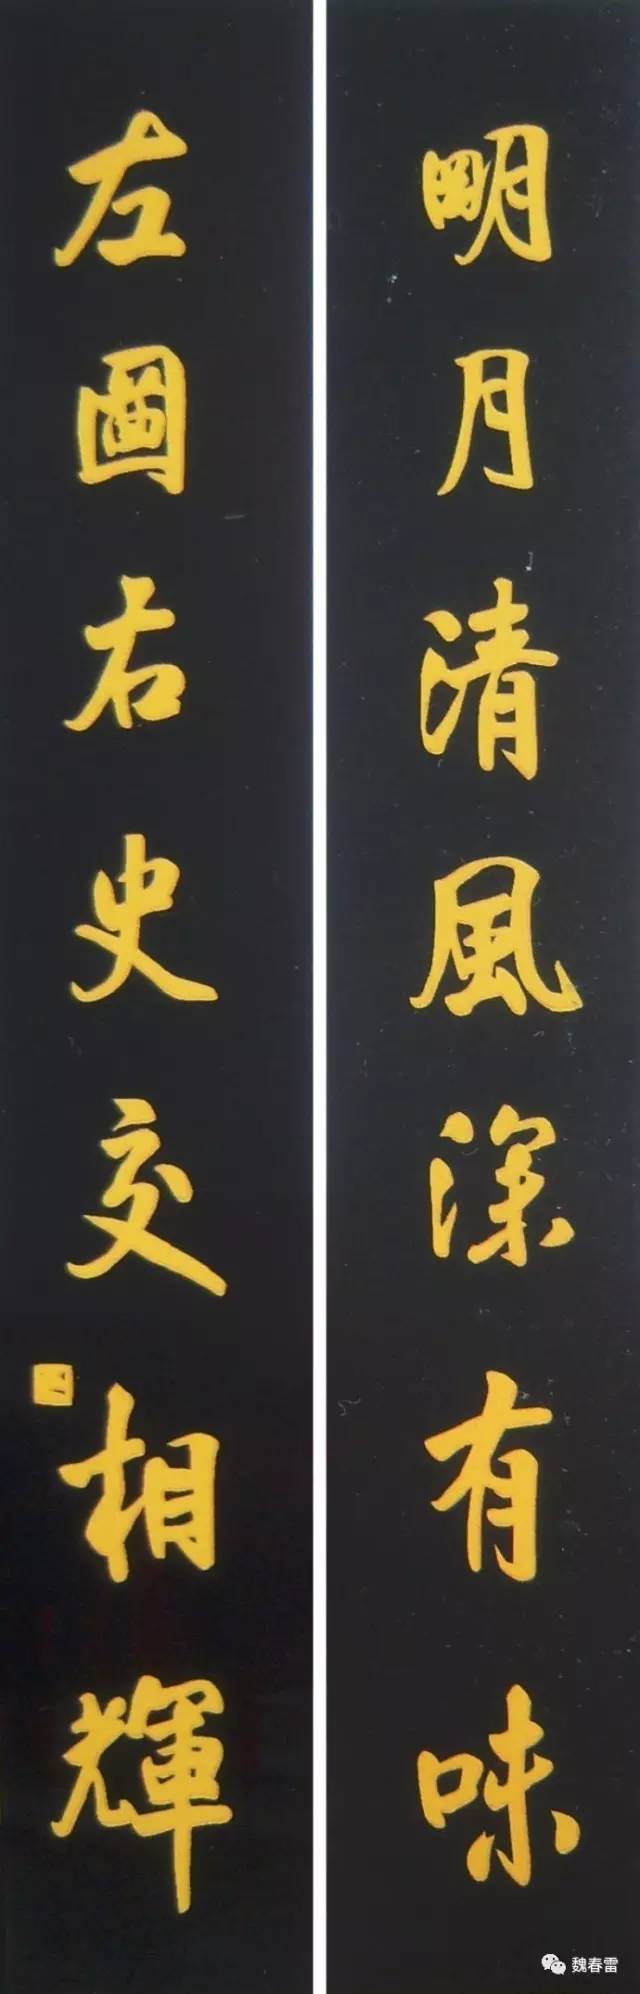 明月清風深有味
左圖右史交相輝
魏春雷